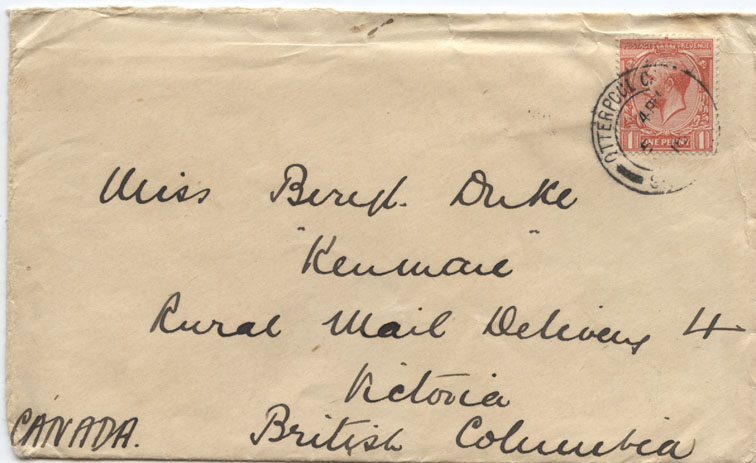 POSTAGE REVENUE
ONE PENNY
OTTERPOOL C
Miss Beryl. Duke
"Kenmare"
Rural Mail Delivery 4
Victoria
British Columbia
CANADA.